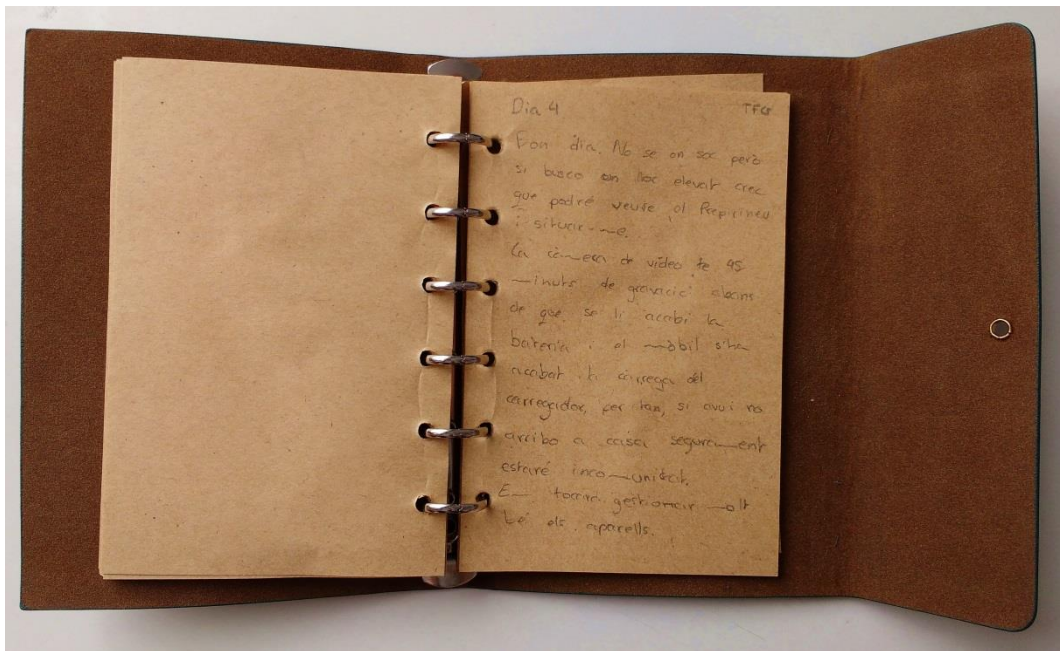 Dia 4 TFG
Bon dia. No se on soc però
si busco un lloc elevat crec
que podré veure el Prepirineu
i situar-me.
La càmera de vídeo te 45
minuts de gravació abans
de que se li acabi la
bateria i el mòbil s'ha
acabat la càrrega del
carregador, per tan, si avui no
arribo a casa segurament
estaré incomunicat.
Em tocara gestionar molt
bé els aparells.